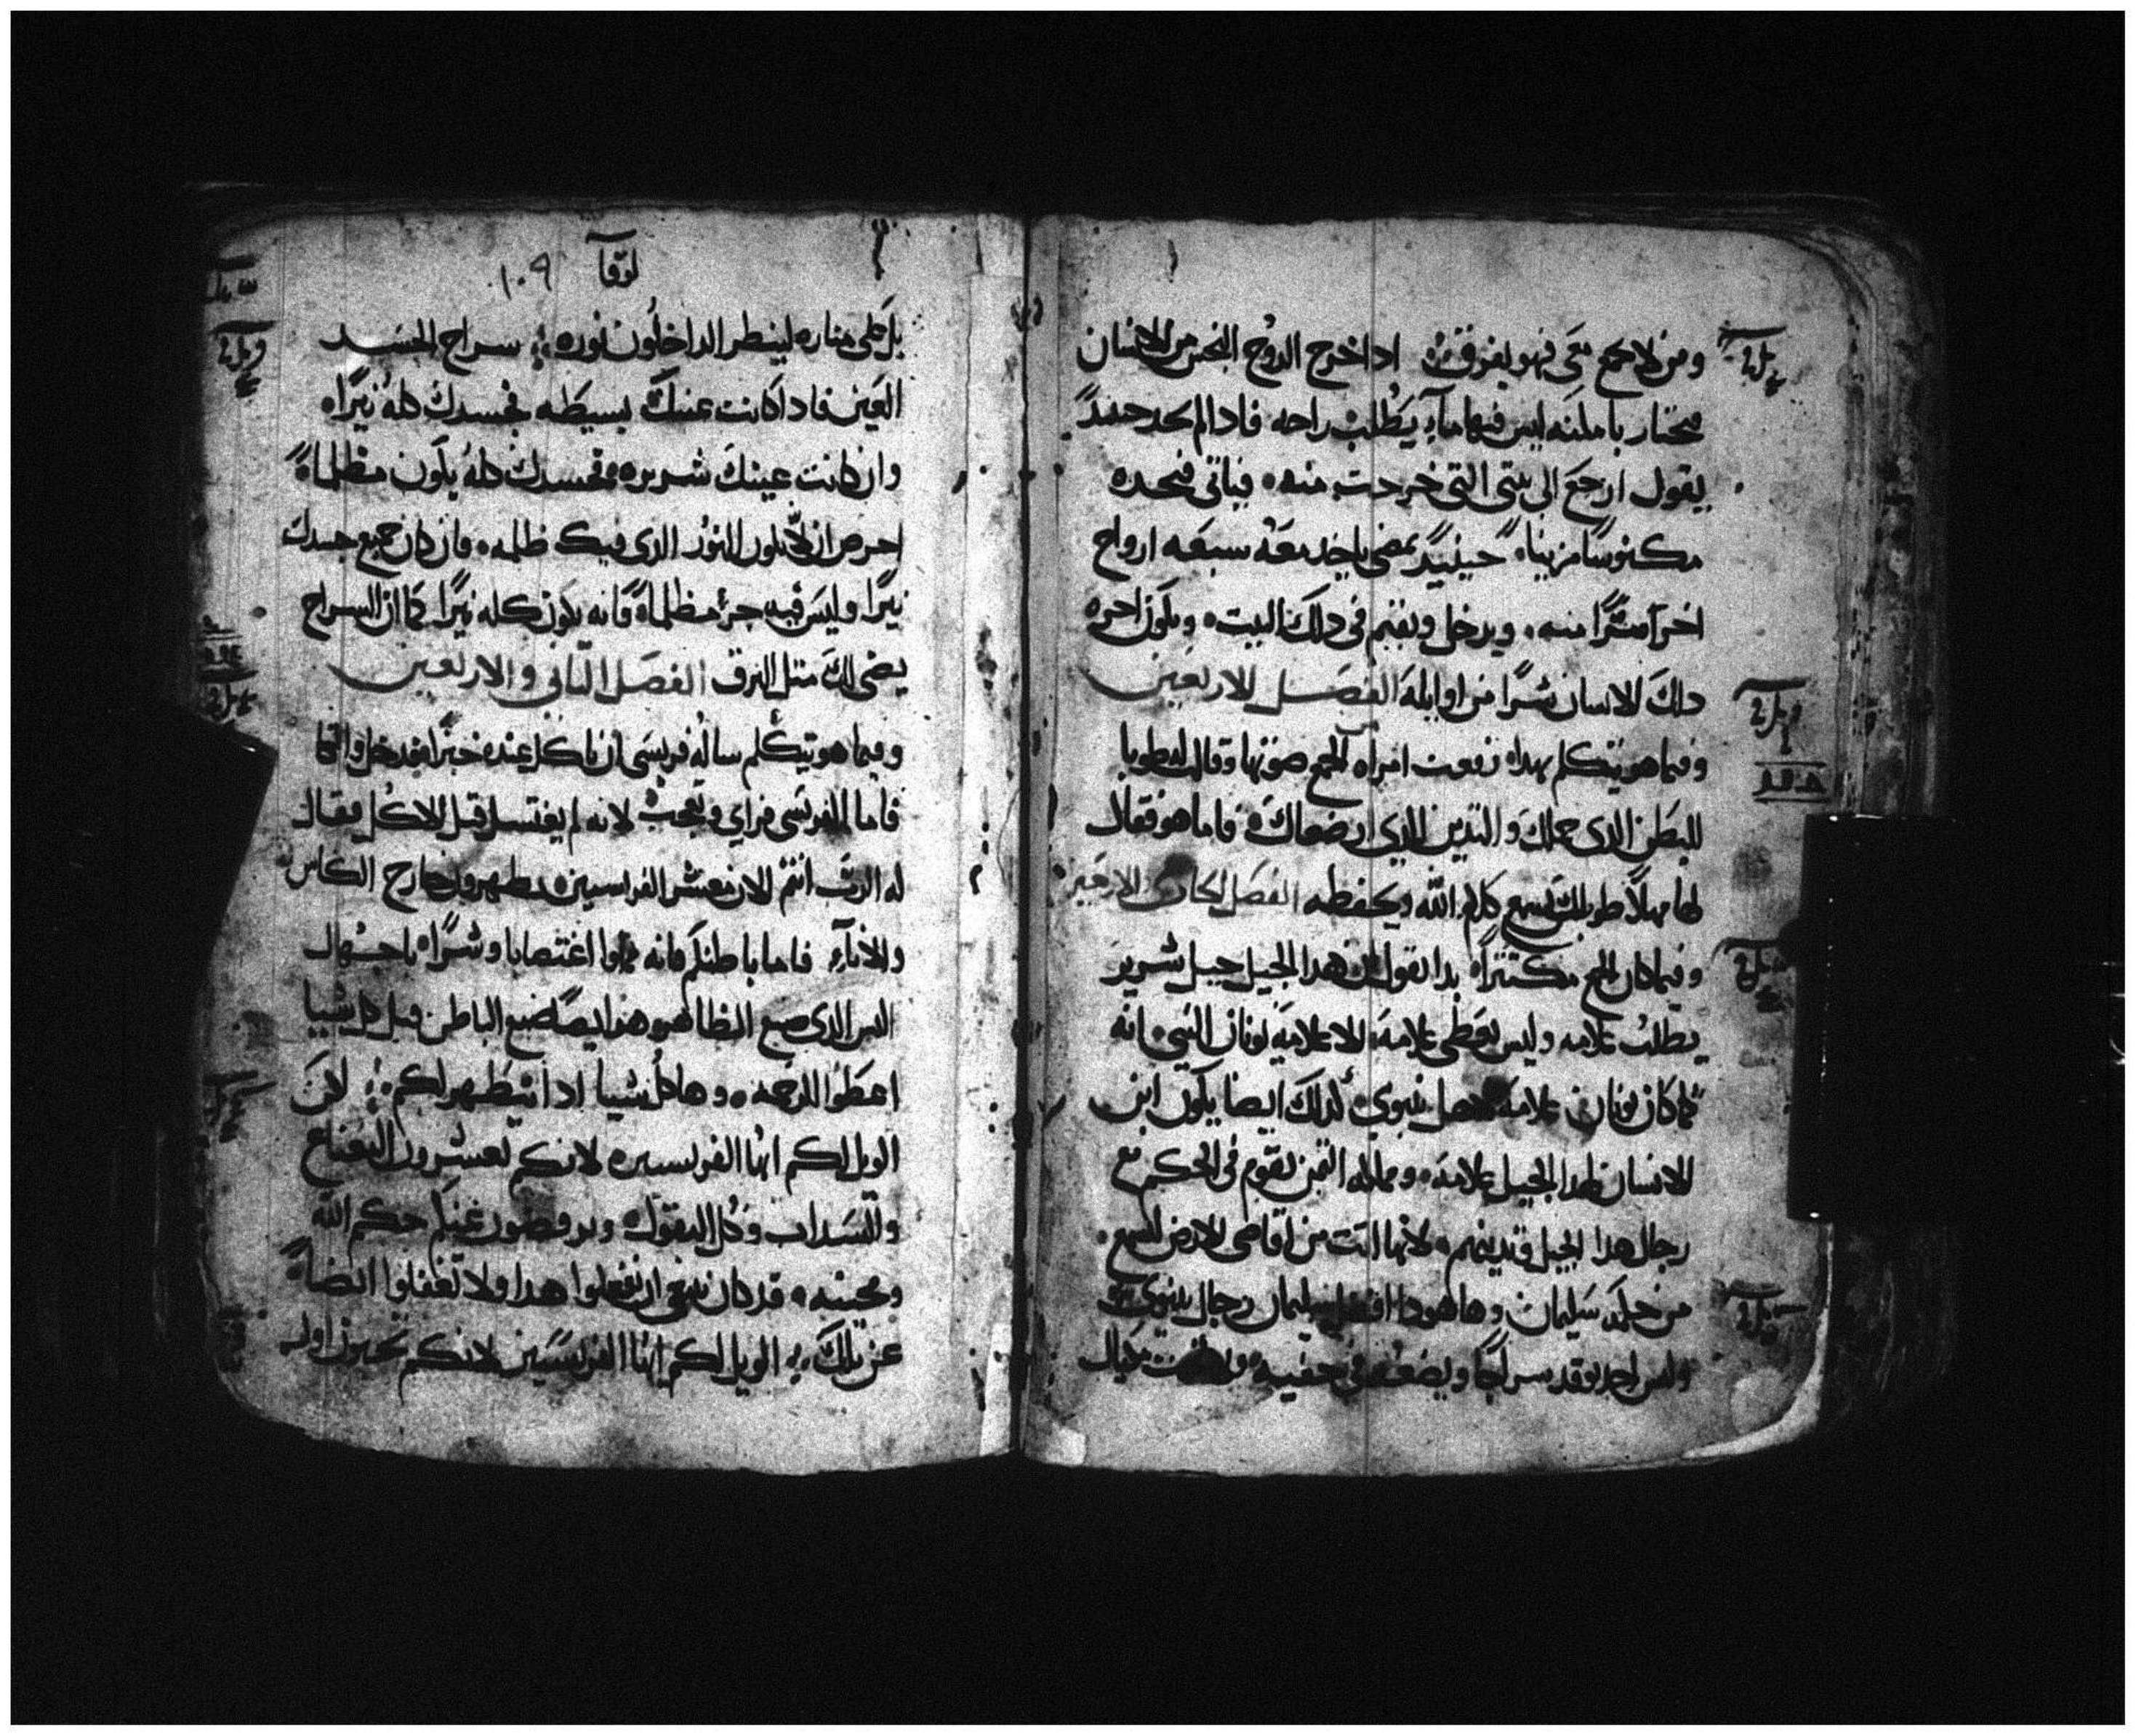 ومن لا يجمع معي فهو يفرق ادا خرج الروح النجس من الانسان
يجتاز باملنه ليس فيها مآء يَطلب راحه فادا لم يجد حينيدً
يقول ارجع الى بيتى التى خرجت منه فياتى فيجده
مكنوسًا مزينا حينيدً يمضى ياخد معه سبعه ارواح
اخر اشرًا منه ويدخل ويقيم فى دلك البيت ويكون اخره
دلك الانسان شرًا من اوايله الفصل الاربعين
وفيما هو يتكلم بهدا رفعت امراه من الجمع صوتها وقالت له طوبا
للبطن الدى حملك والتديين الدي ارضعاك فاما هو فقال
لها مهلًا طوبا لمن يسمع كلام الله ويحفظه الفصل الحادى الاربعين
وفيما كان الجمع مكتترًا بدا يقول ان هدا الجيل جيل شرير
يطلب علامه وليس يعطى علامه الا علامة يونان النبي انه
كما كان يونان علامه لاهل نينوى كدلك ايضا يكون ابن
الانسان لهدا الجيل علامه وملكه التيمن تقوم فى الحكم مع
رجال هدا الجيل وتدينهم لانها اتت من اقاصى الارض لتسمع
من حكمة سليمان وها هودا افضل من سليمان رجال نينوى
وليس احد يوقد سراجًا ويضعه فى خفيه او تحت مكيال
لوقا ١٠٩
بل على مناره لينظر الداخلون نوره سراج الجسد
العين فادا كانت عينك بسيطه فجسدك كله نيرًا
وان كانت عينك شريره فجسدك كله يكون مظلمًا
احرص ان لا يكون النور الدى فيك ظلمه فان كان جميع جسدك
نيرًا وليس فيه جزء مظلمًا فانه يكون كله نيرًا كما ان السراج
يضى لك متل البرق الفصل التانى والاربعين
وفيما هو يتكلم ساله فريسى ان ياكل عنده خبزًا فدخل واتكا
فاما الفريسى فراي وتعجب لانه لم يغتسل قبل الاكل فقال
له الرب انتم الان معشر الفريسيين تطهرون خارج الكاس
والانآء فاما باطنكم فانه مملوا اغتصابا وشرًا يا جهال
اليس الدى صنع الظاهر هو ايضًا صنع الباطن قبل كل شييا
اعطوا الرحمه وها كل شيا ادا يتطهر لكم لكن
الويل لكم ايها الفريسيين لانكم تعشرون النعناع
والسداب وكل البقول وترفضون عنكم حكم الله
ومحبته قد كان ينبغى ان تفعلوا هدا ولا تغفلوا ايضًا
عن تلك الويل لكم ايها الفريسيين لانكم تحبون اول